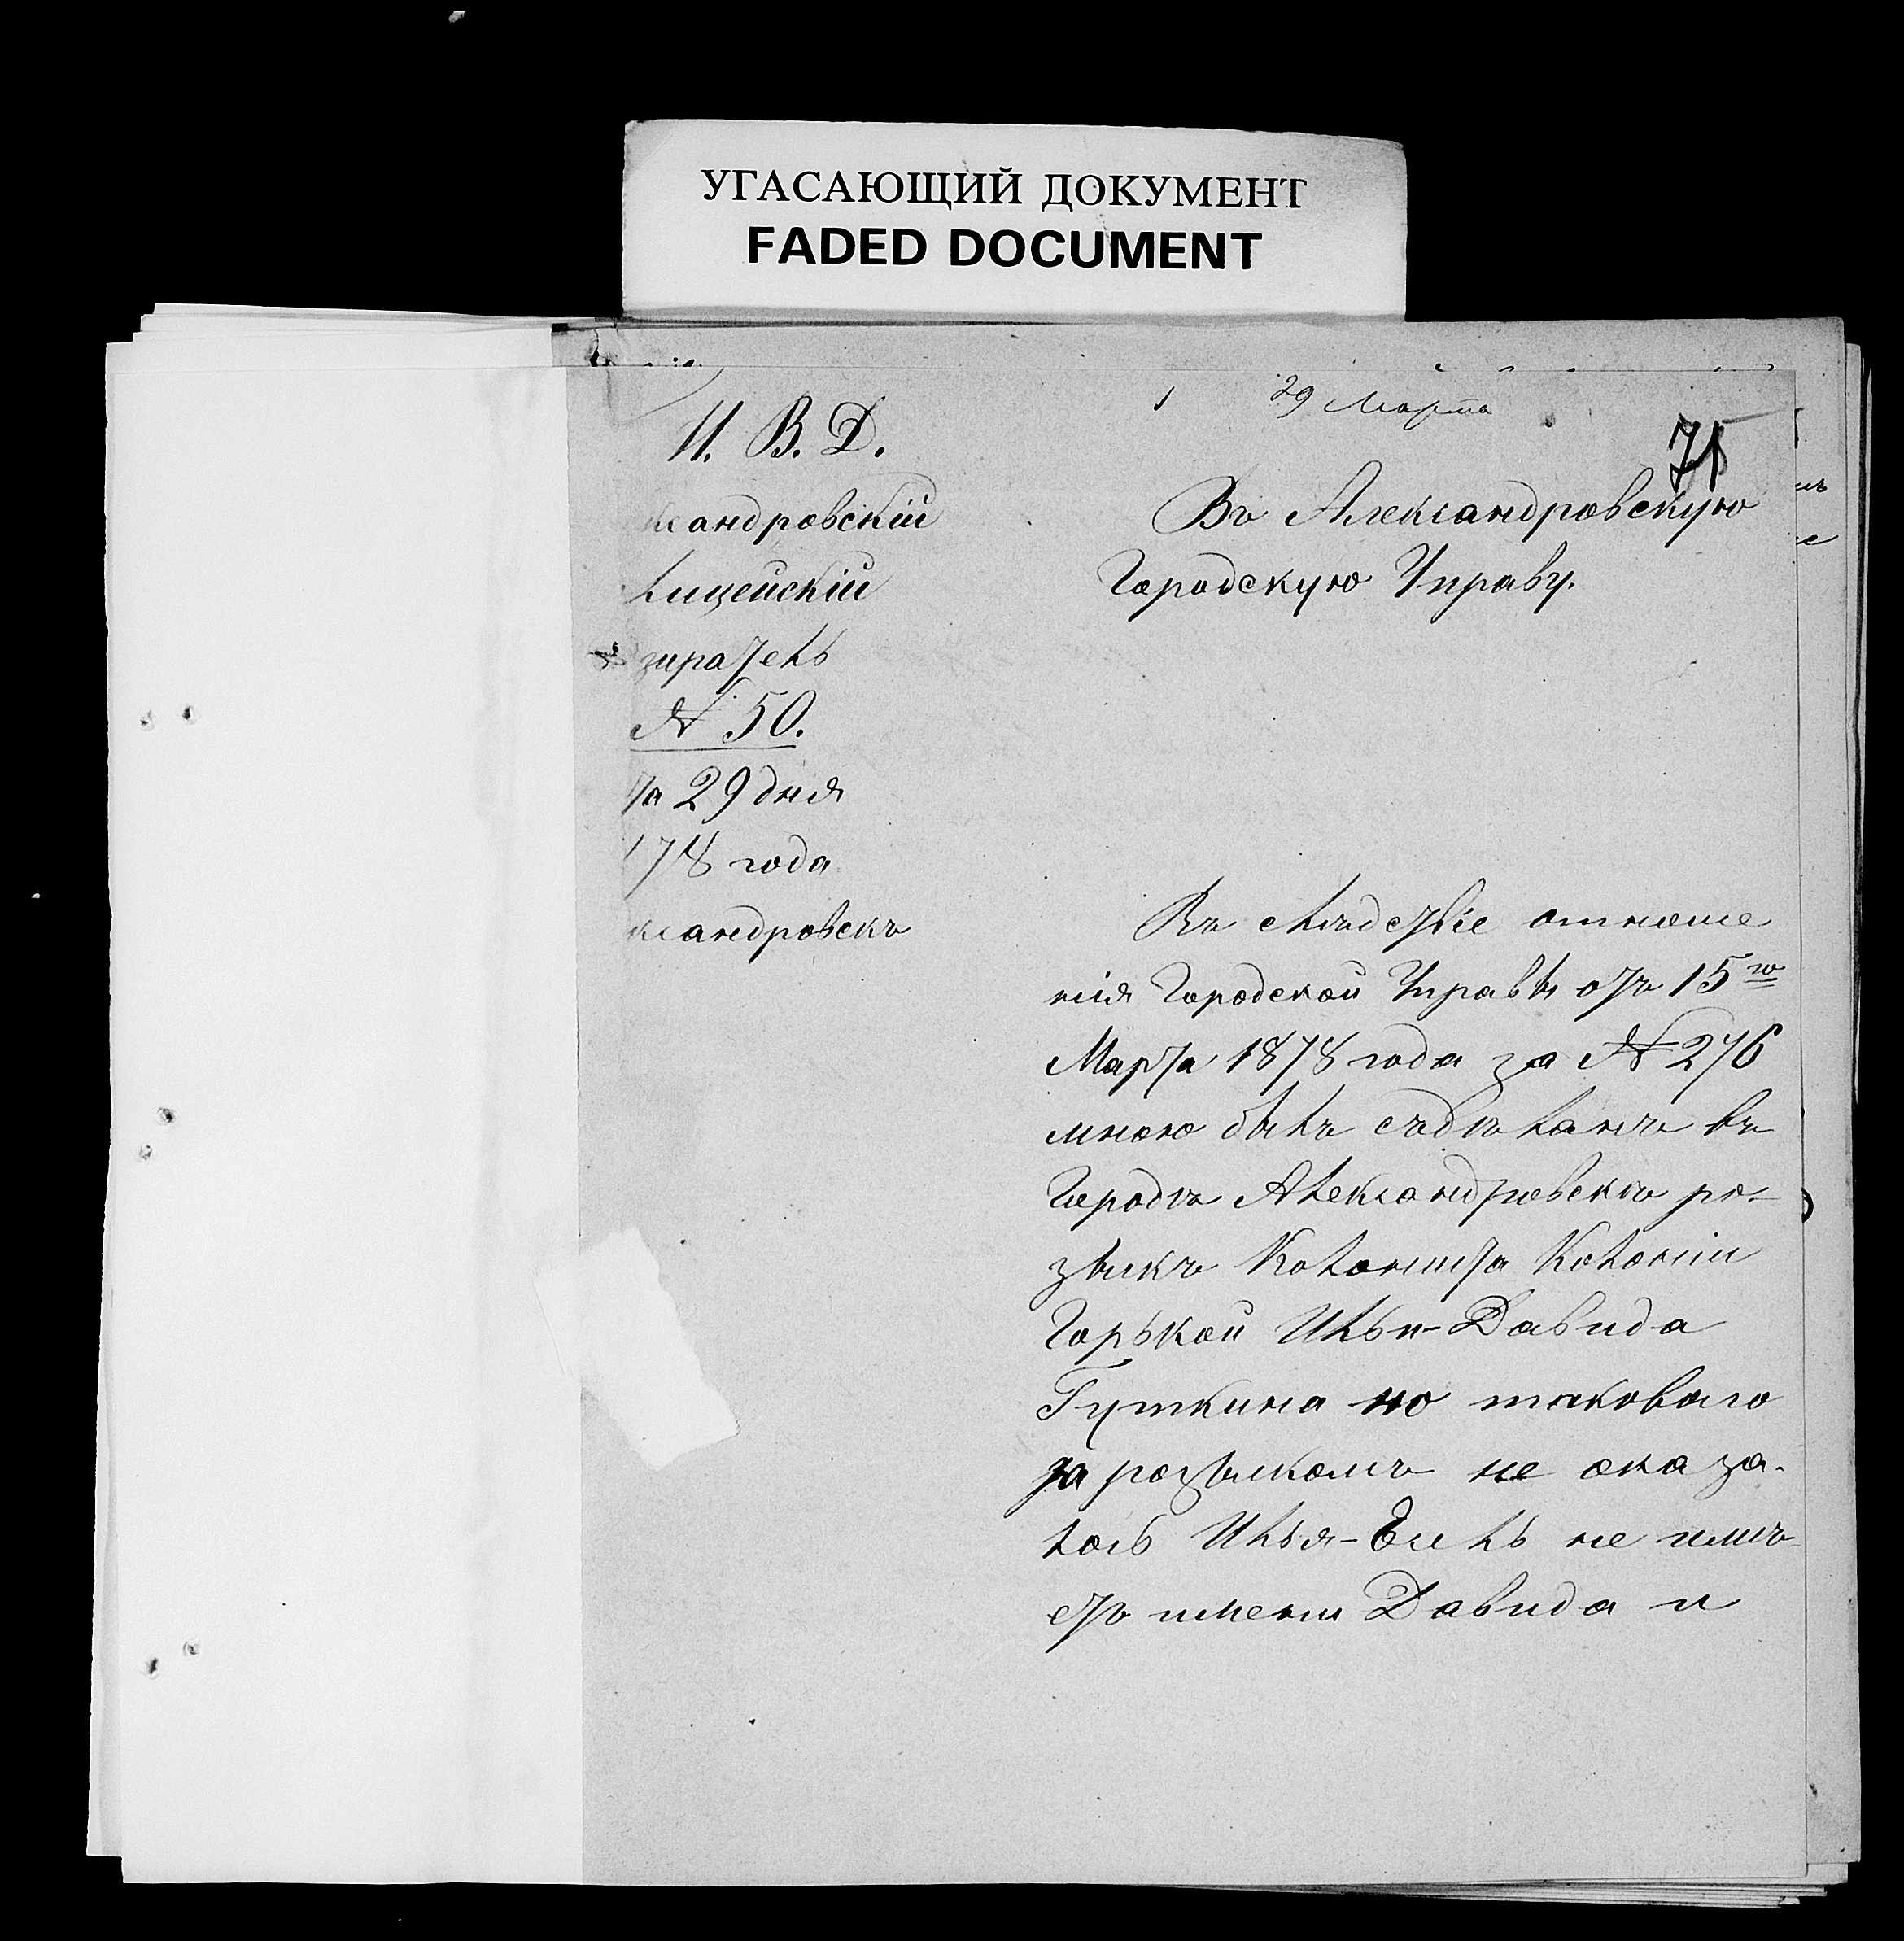 УГАСАЮЩИЙ ДОКУМЕНТ
FADED DOCUMENT
29 Марта
75
И. В. Д.
ксандровскій
лицейскій
зиратель
№ 50.
та 29 дня
178 года
ксандровскъ
Въ Александровскую
Городскую Управу.
Въ слѣдствіе отноше
нія Городской Управы отъ 15го
Марта 1878 года за № 276
мною былъ сѣдѣланъ въ
Городѣ Александровскѣ ро-
зыскъ Колониста Колоніи
Горькой Ильи-Давида
Гуткина но таковаго
за розыскомъ не оказа-
лось Илья-Ель не имѣ
етъ имени Давида и